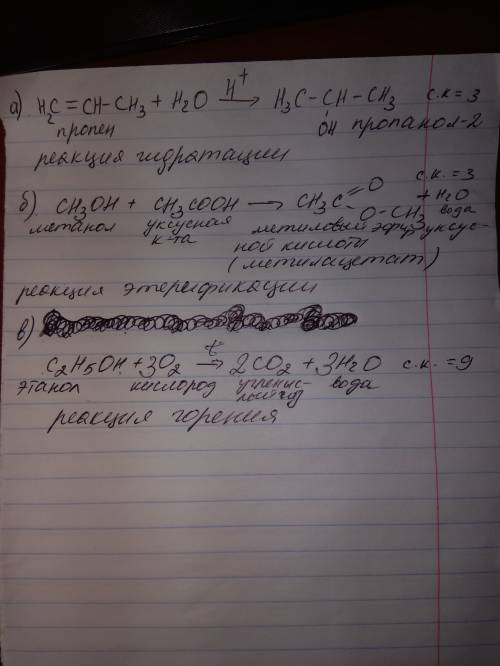 а) H₂C=CH-CH₃ + H₂O —H⁺→ H₃C-CH-CH₃ с.к = 3
пропен OH пропанол-2
реакция гидратации
с.к. = 3
б) CH₃OH + CH₃COOH → CH₃C=O + H₂O
O-CH₃
метанол уксусная метиловый эфир уксус- вода
к-та ной кислоты
(метилацетат)
реакция этерификации
в)
C₂H₅OH + 3O₂ —t→ 2CO₂ + 3H₂O с.к. = 9
этанол кислород углекис- вода
лый газ
реакция горения